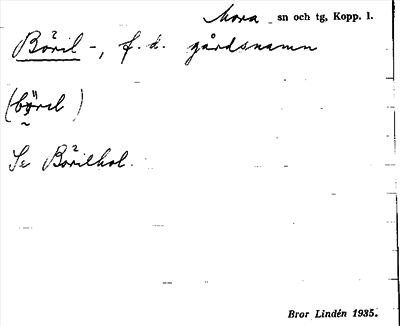 Mora sn och tg, Kopp. l.
Böril -, f. d. gårdsnamn
(böril)
Se Börilhol.
Bror Lindén 1935.